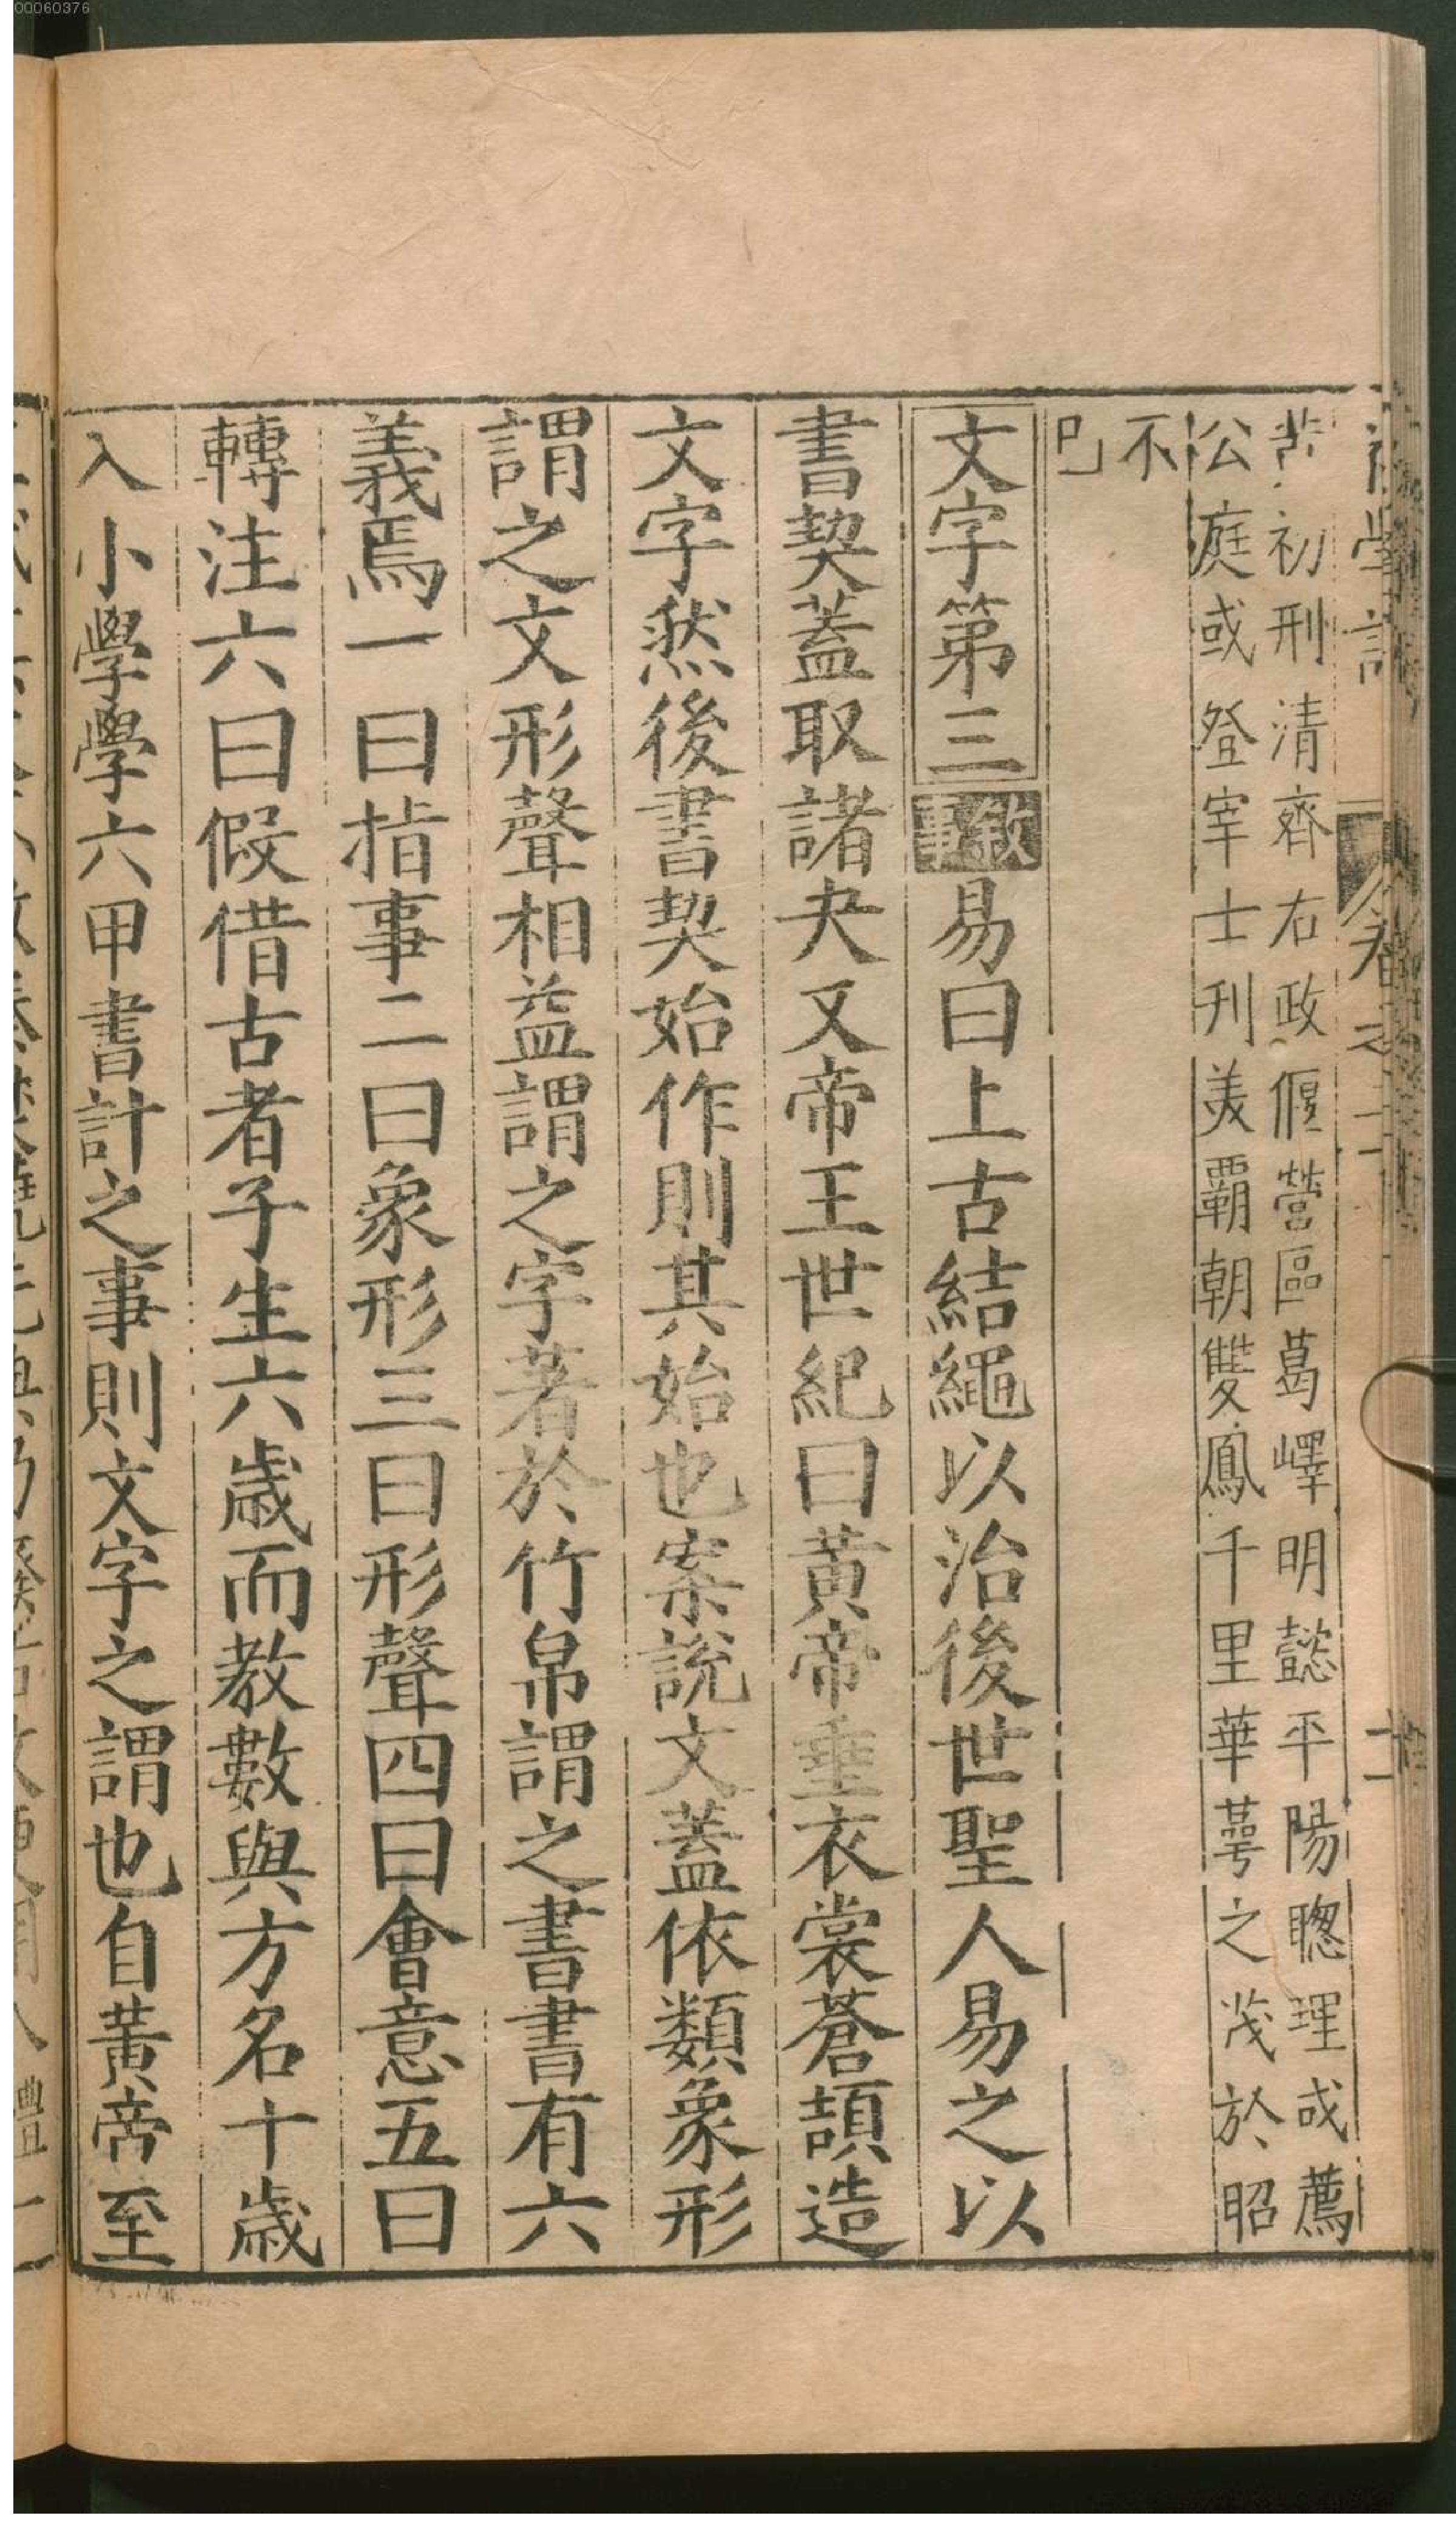 初刑清齊右政偃營區葛嶧明懿平陽聰理成薦
公庭或登宰士刋美覇朝雙鳳千里華萼之茂於昭
不
巳
文字第三敘事易曰上古結繩以治後世聖人易之以
書契蓋取諸夬又帝王世紀曰黄帝垂衣裳蒼頡造
文字然後書契始作則其始也案説文蓋依類象形
謂之文形聲相益謂之字著於竹帛謂之書書有六
義焉一曰指事二曰象形三曰形聲四曰會意五曰
轉注六曰假借古者子生六歳而教數與方名十歳
入小學學六甲書計之事則文字之謂也自黄帝至
00060376